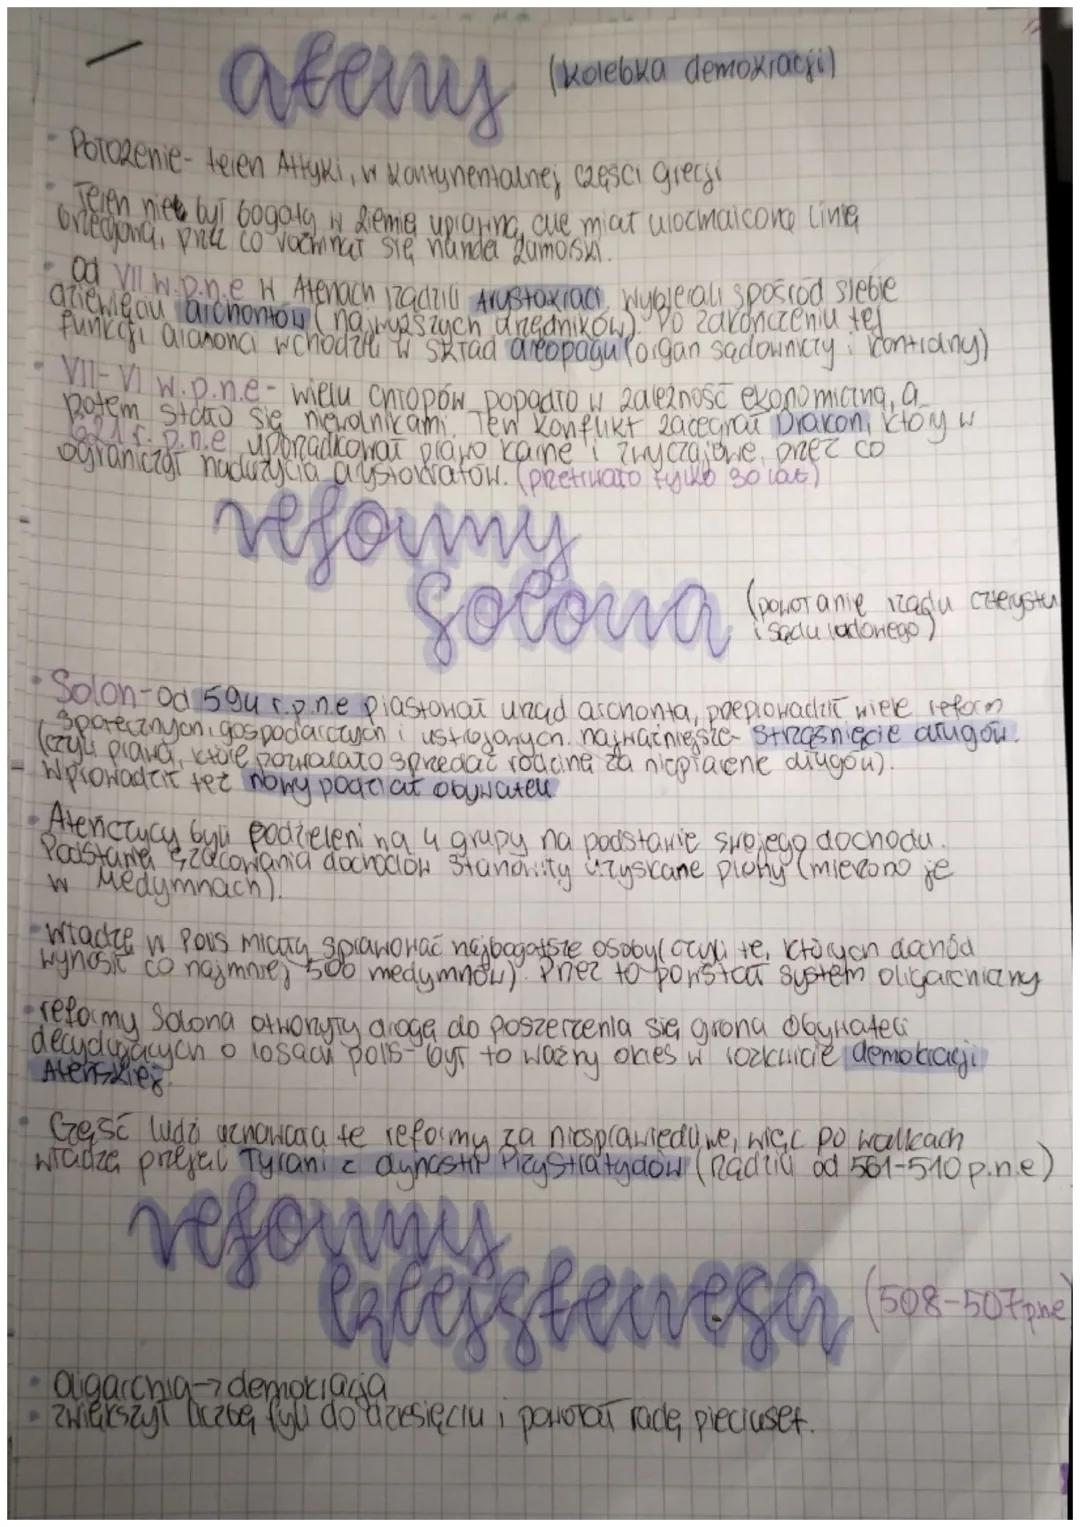 ateny (kolebka demokracji)
- Położenie- teren Attyki, w kontynentalnej części grecji
- Teren nie był bogaty w ziemię uprawną, ale miał urozmaiconą linię
brzegową, przez co rozwinął się handel zamorski.
- Od VII w.p.n.e w Atenach rządzili Arystokraci, wybierali spośród siebie
dziewięciu archontów (najwyższych urzędników). Po zakończeniu tej
funkcji archonci wchodzili w skład areopagu (organ sądowniczy i kontrolny)
- VII-VI w.p.n.e - wielu chłopów popadło w zależność ekonomiczną, a
potem stało się niewolnikami. Ten konflikt zażegnał Drakon, który w
621 r. p.n.e uporządkował prawo karne i zwyczajowe, przez co
ograniczał nadużycia arystokratów. (przetrwało tylko 30 lat)
reformy
Solona (powołanie rządu czterystu
i sądu ludowego)
- Solon-od 594 r.p.n.e piastował urząd archonta, przeprowadził wiele reform
społecznych, gospodarczych i ustrojowych. najważniejsze- strząśnięcie długów.
(czyli prawa, które pozwalało sprzedać rodzinę za niepłacenie długów).
Wprowadził też nowy podział obywateli
- Ateńczycy byli podzieleni na 4 grupy na podstawie swojego dochodu.
Podstawę szacowania dochodów stanowiły uzyskane plony (mierzono je
w Medymnach).
- Władzę w Polis miały sprawować najbogatsze osoby (czyli te, których dochód
wynosił co najmniej 500 medymnów). Przez to powstał system oligarchiczny
- reformy Solona otworzyły drogę do poszerzenia się grona Obywateli
decydujących o losach polis- był to ważny okres w rozkwicie demokracji
Ateńskiej.
- Część ludzi uznawała te reformy za niesprawiedliwe, więc po walkach
władzę przejęli Tyrani z dynastii Pizystratydów (rządzili od 561-510 p.n.e)
reformy
Klejstenesa (508-507 p.n.e)
- oligarchia→demokracja
- zwiększył liczbę fyli do dziesięciu i powołał radę pięciuset.